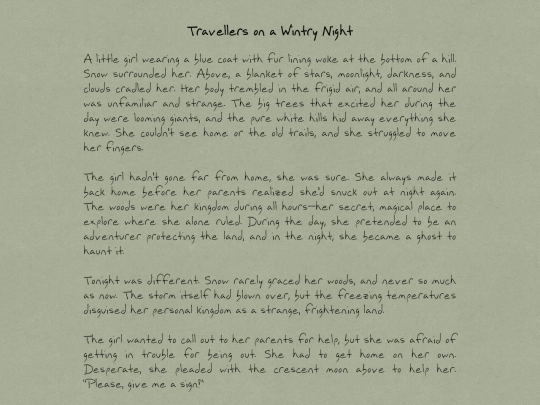 Travellers on a Wintry Night
A little girl wearing a blue coat with fur lining woke at the bottom of a hill.
Snow surrounded her. Above, a blanket of stars, moonlight, darkness, and
clouds cradled her. Her body trembled in the frigid air, and all around her
was unfamiliar and strange. The big trees that excited her during the
day were looming giants, and the pure white hills hid away everything she
knew. She couldn't see home or the old trails, and she struggled to move
her fingers.
The girl hadn't gone far from home, she was sure. She always made it
back home before her parents realized she'd snuck out at night again.
The woods were her kingdom during all hours—her secret, magical place to
explore where she alone ruled. During the day, she pretended to be an
adventurer protecting the land, and in the night, she became a ghost to
haunt it.
Tonight was different. Snow rarely graced her woods, and never so much
as now. The storm itself had blown over, but the freezing temperatures
disguised her personal kingdom as a strange, frightening land.
The girl wanted to call out to her parents for help, but she was afraid of
getting in trouble for being out. She had to get home on her own.
Desperate, she pleaded with the crescent moon above to help her.
"Please, give me a sign?"